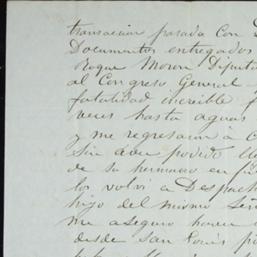 transacion pasada con
Documentos entregados
Roque Moron Diputa
al Congreso General
fatalidad increible
veces hasta aguas
y me regresaron a C
sin aver podido
de su hermano en
los volvi a Despach
hijo del mismo Señ
me aseguro haver
desde San Louis po